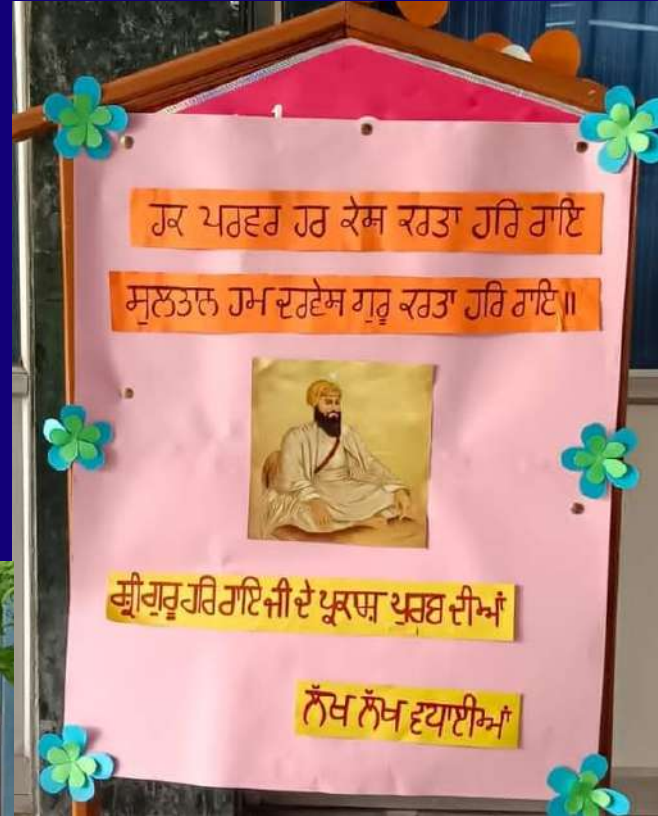 ਹਕ ਪਰਵਰ ਹਰ ਕੇਸ਼ ਕਰਤਾ ਹਰਿ ਰਾਇ
ਸੁਲਤਾਨ ਹਮ ਦਰਵੇਸ ਗੁਰੂ ਕਰਤਾ ਹਰਿ ਰਾਇ॥
ਸ਼੍ਰੀ ਗੁਰੂ ਹਰਿ ਰਾਇ ਜੀ ਦੇ ਪ੍ਰਕਾਸ਼ ਪੁਰਬ ਦੀਆਂ
ਲੱਖ ਲੱਖ ਵਧਾਈਆਂ